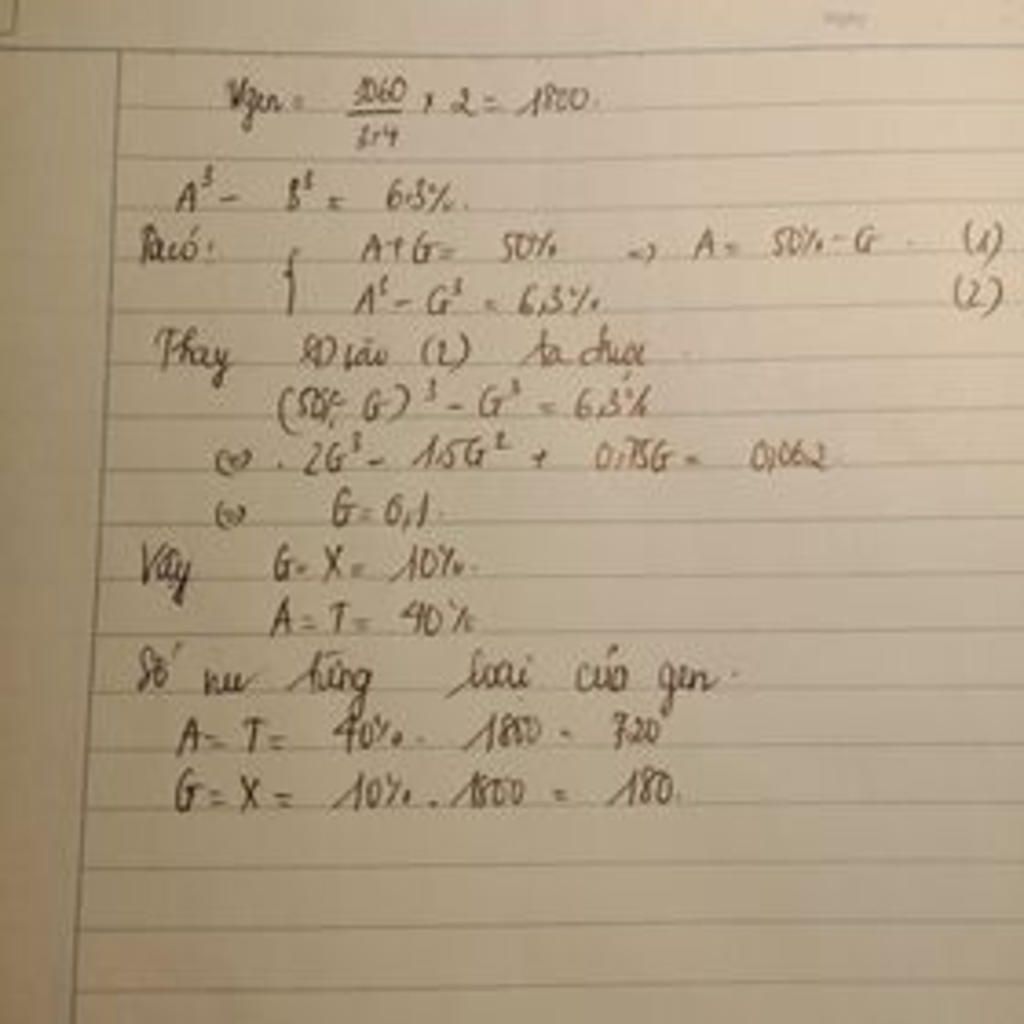 Ngen = 3060/3,4 × 2 = 1800.
A³ - G³ = 6,3%.
Ta có: A+G = 50% => A = 50% - G (1)
A³ - G³ = 6,3% (2)
Thay (1) vào (2) ta được
(50% - G)³ - G³ = 6,3%
<=> 2G³ - 1,5G² + 0,75G = 0,062
<=> G = 0,1.
Vậy G = X = 10%.
A = T = 40%
Số nu từng loại của gen.
A = T = 40% . 1800 = 720
G = X = 10% . 1800 = 180.